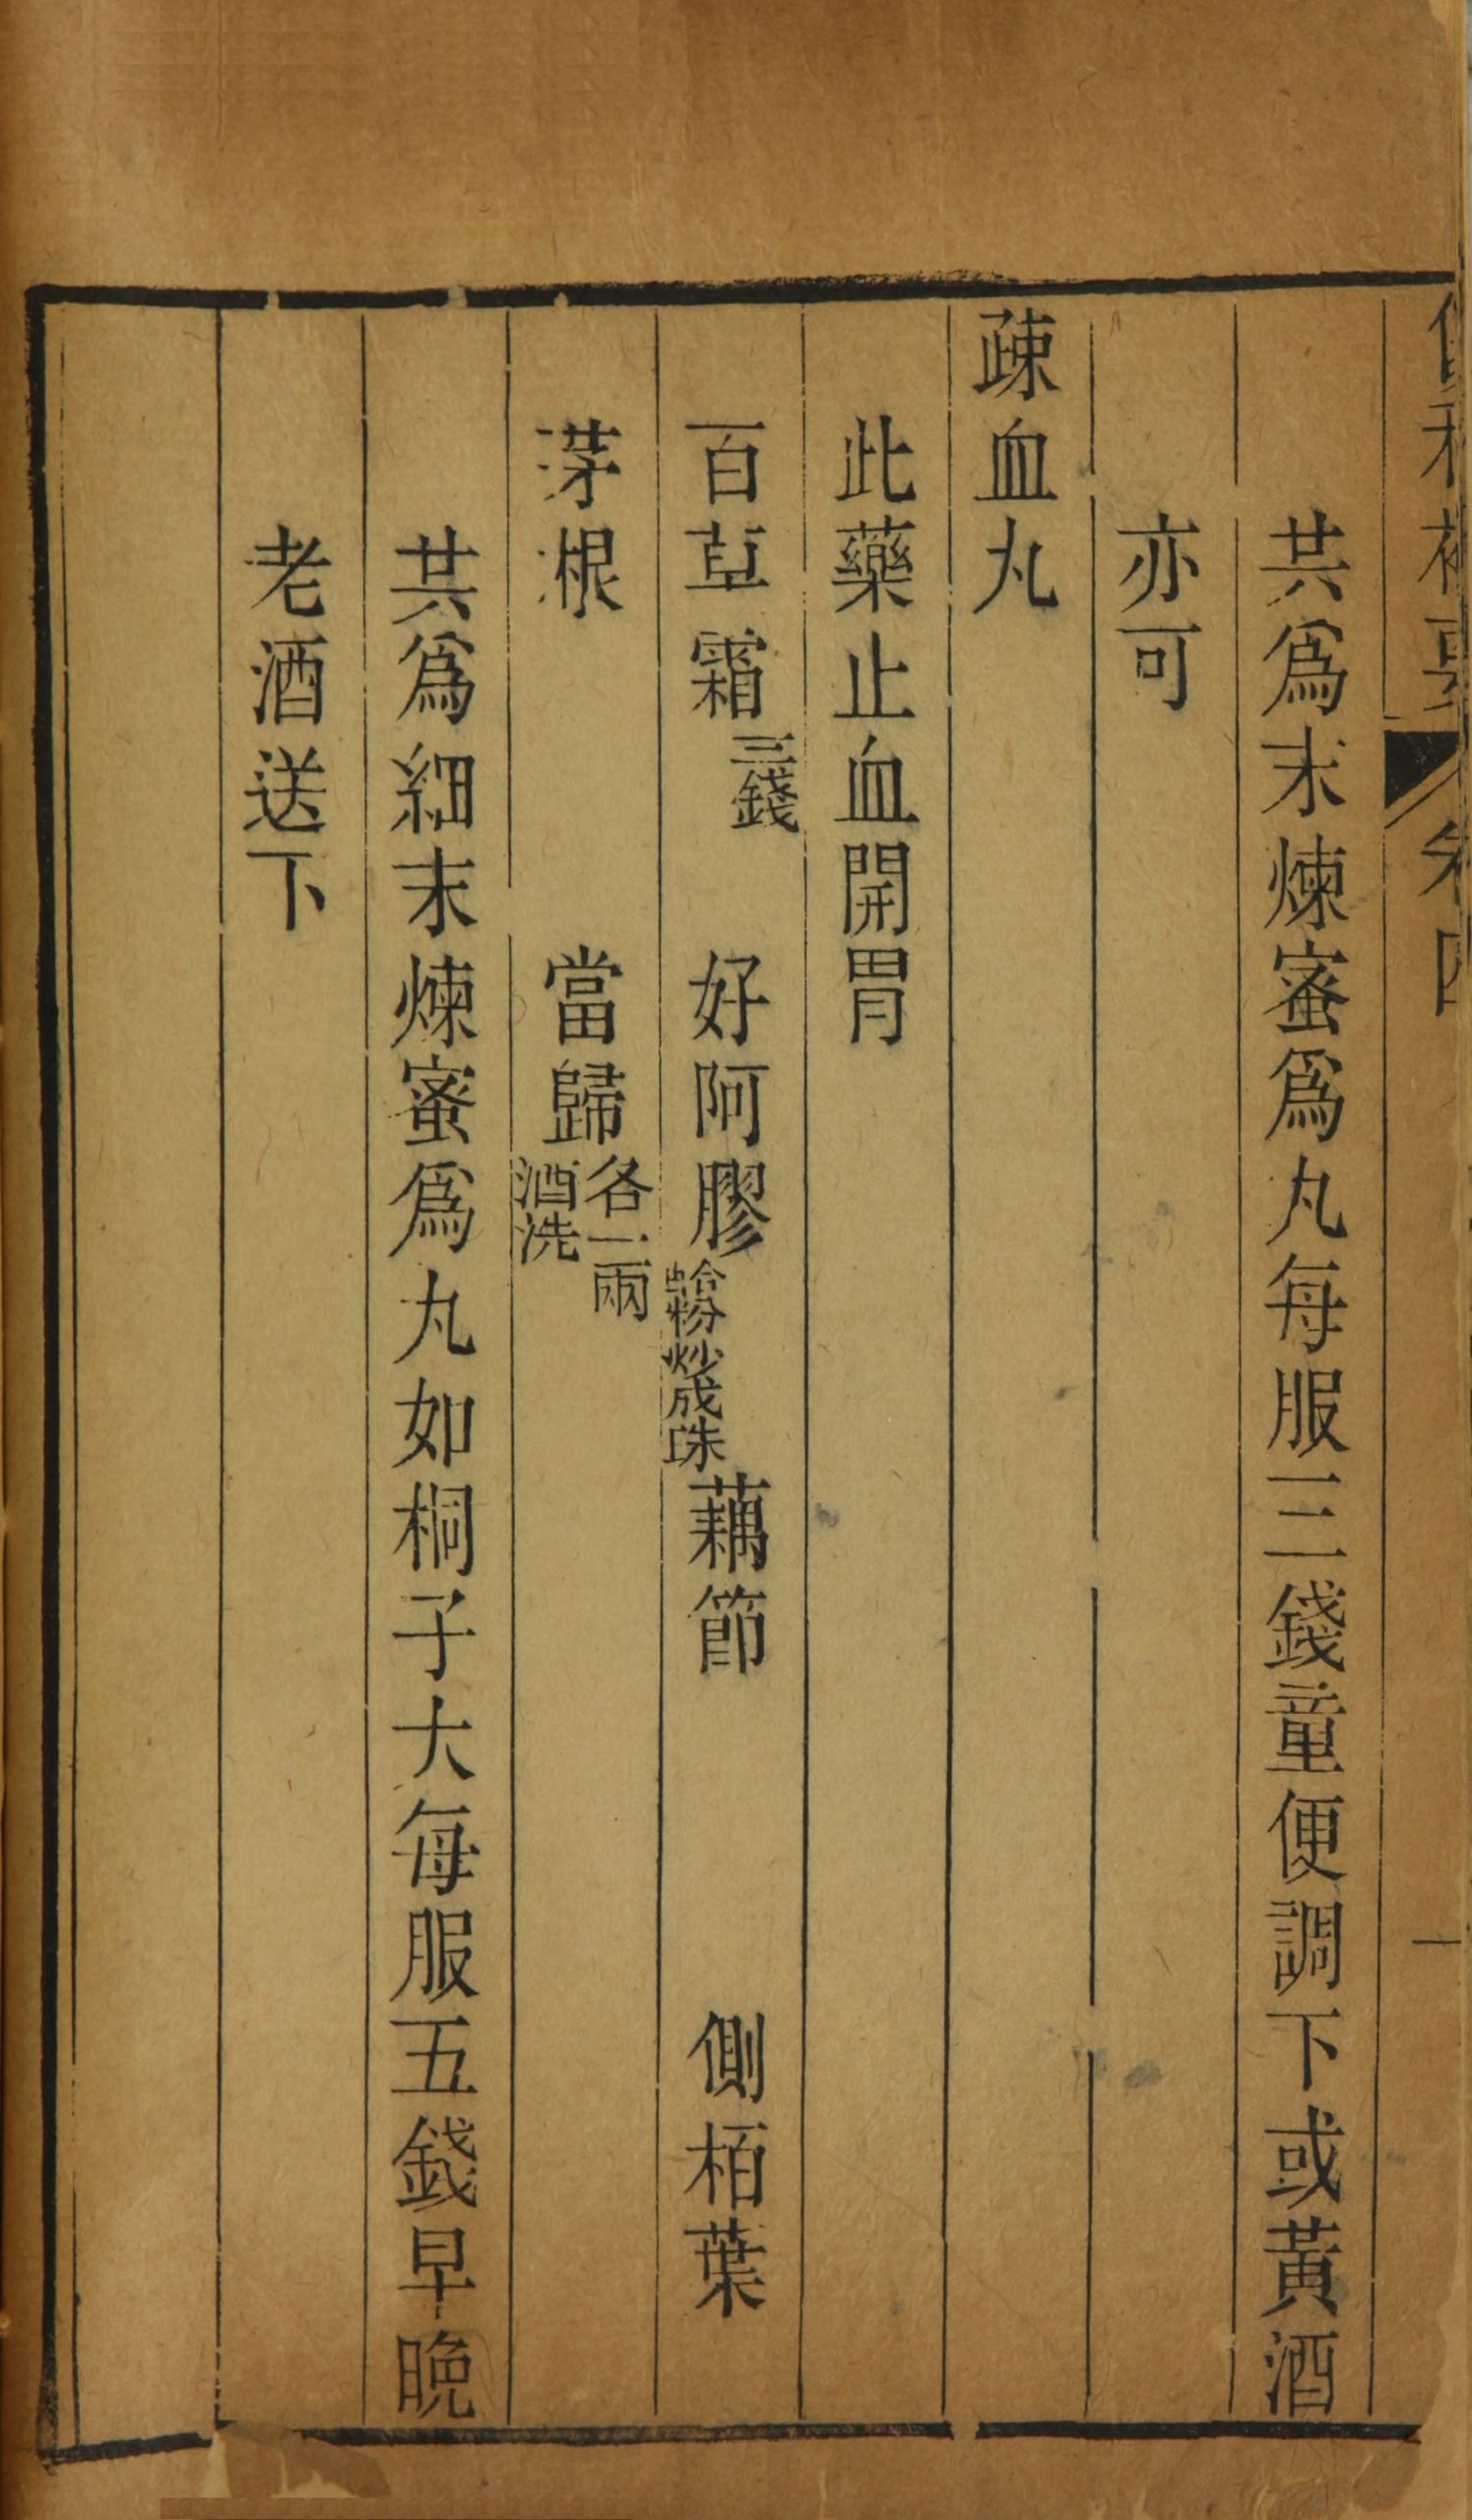 共爲末煉蜜爲丸每服三錢童便調下或黃酒
亦可
疎血丸
此藥止血開胃
百草霜三錢 好阿膠蛤粉炒成珠 藕節 側栢葉
茅根 當歸各二兩酒洗
共爲細末煉蜜爲丸如桐子大每服五錢早晚
老酒送下